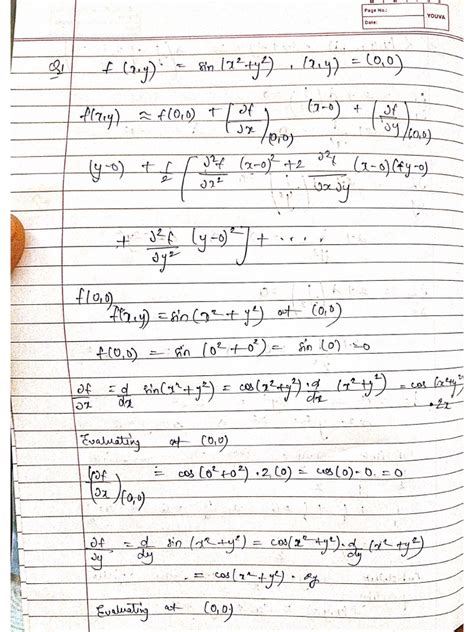 Page No.:
Date:
YOUVA
Q1 f(x,y) = sin(x²+y²), (x,y) = (0,0)
f(x,y) ≈ f(0,0) + [∂f/∂x](0,0) (x-0) + (∂f/∂y)(0,0)
(y-0) + 1/2 [∂²f/∂x² (x-0)² + 2 ∂²f/∂x∂y (x-0)(y-0)
+ ∂²f/∂y² (y-0)²] + ....
f(0,0)
f(x,y) = sin(x² + y²) at (0,0)
f(0,0) = sin (0² + 0²) = sin (0) = 0
∂f/∂x = d/dx sin(x² + y²) = cos(x²+y²) · d/dx (x²+y²) = cos(x²+y²)
· 2x
Evaluating at (0,0)
[∂f/∂x](0,0) = cos(0²+0²) · 2(0) = cos(0) · 0 = 0
∂f/∂y = d/dy sin (x²+y²) = cos(x²+y²) · d/dy (x²+y²)
= cos(x²+y²) · 2y
Evaluating at (0,0)